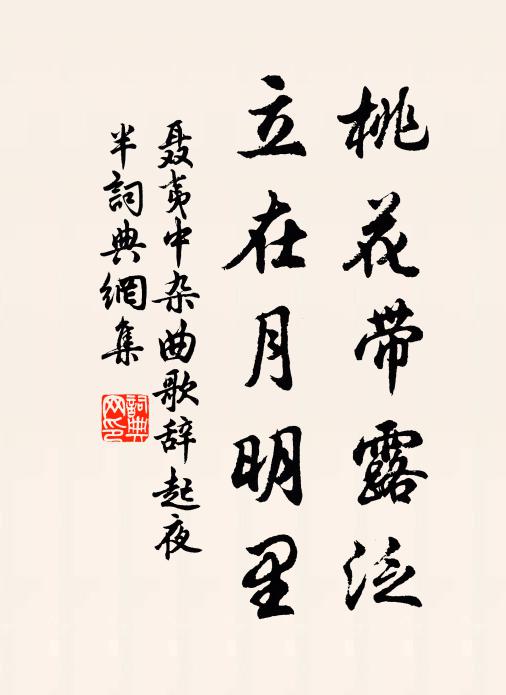 桃花带露泛
立在月明里
聂夷中杂曲歌辞起夜
半詞典網集
詞典
网印